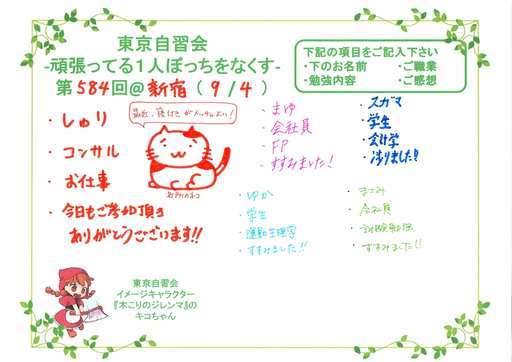 東京自習会
-頑張ってる1人ぼっちをなくす-
第584回@新宿(9/4)
下記の項目をご記入下さい
・下のお名前 ・ご職業
・勉強内容 ・ご感想
・しゅり
・コンサル
・お仕事
・今日もご参加頂き
ありがとうございます!!
・まゆ
・会社員
・FP
・すすみました!
・スガマ
・学生
・会計学
・捗りました!!
・ゆか
・学生
・運動生理学
・すすみました!!
・まさみ
・会社員
・すすみました!!
東京自習会
イメージキャラクター
『木こりのジレンマ』の
キコちゃん